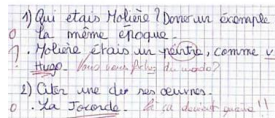 1) Qui étais Molière? Donner un exemple
0 la même époque.
? . Molière étais un peintre, comme V
Hugo. Vous vous fichez du monde?
2) Citer une des ses oeuvres.
0 . La Joconde. ça devient grave!!